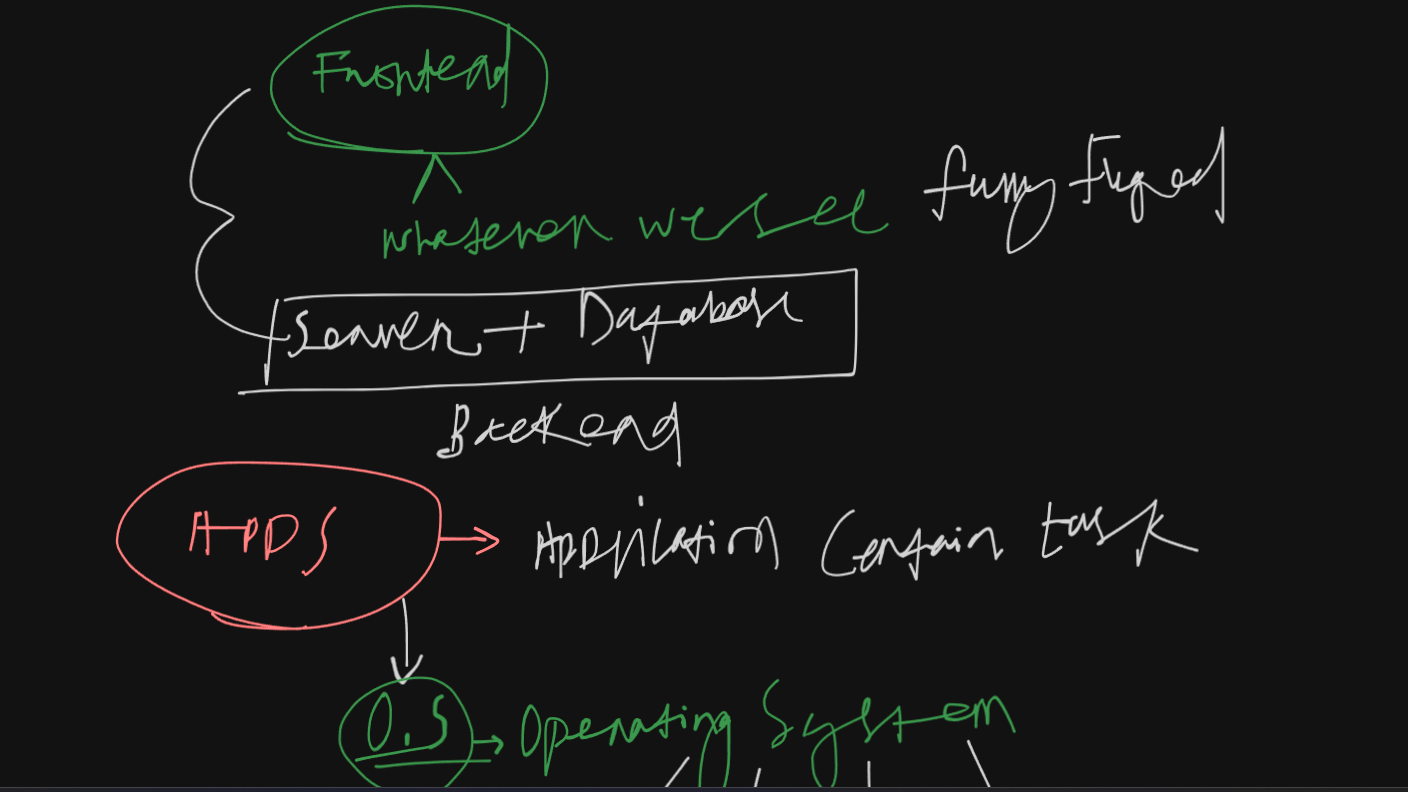 Frontend
whatever we see
Server + Database
Backend
APPS → Application Certain task
O.S → Operating System